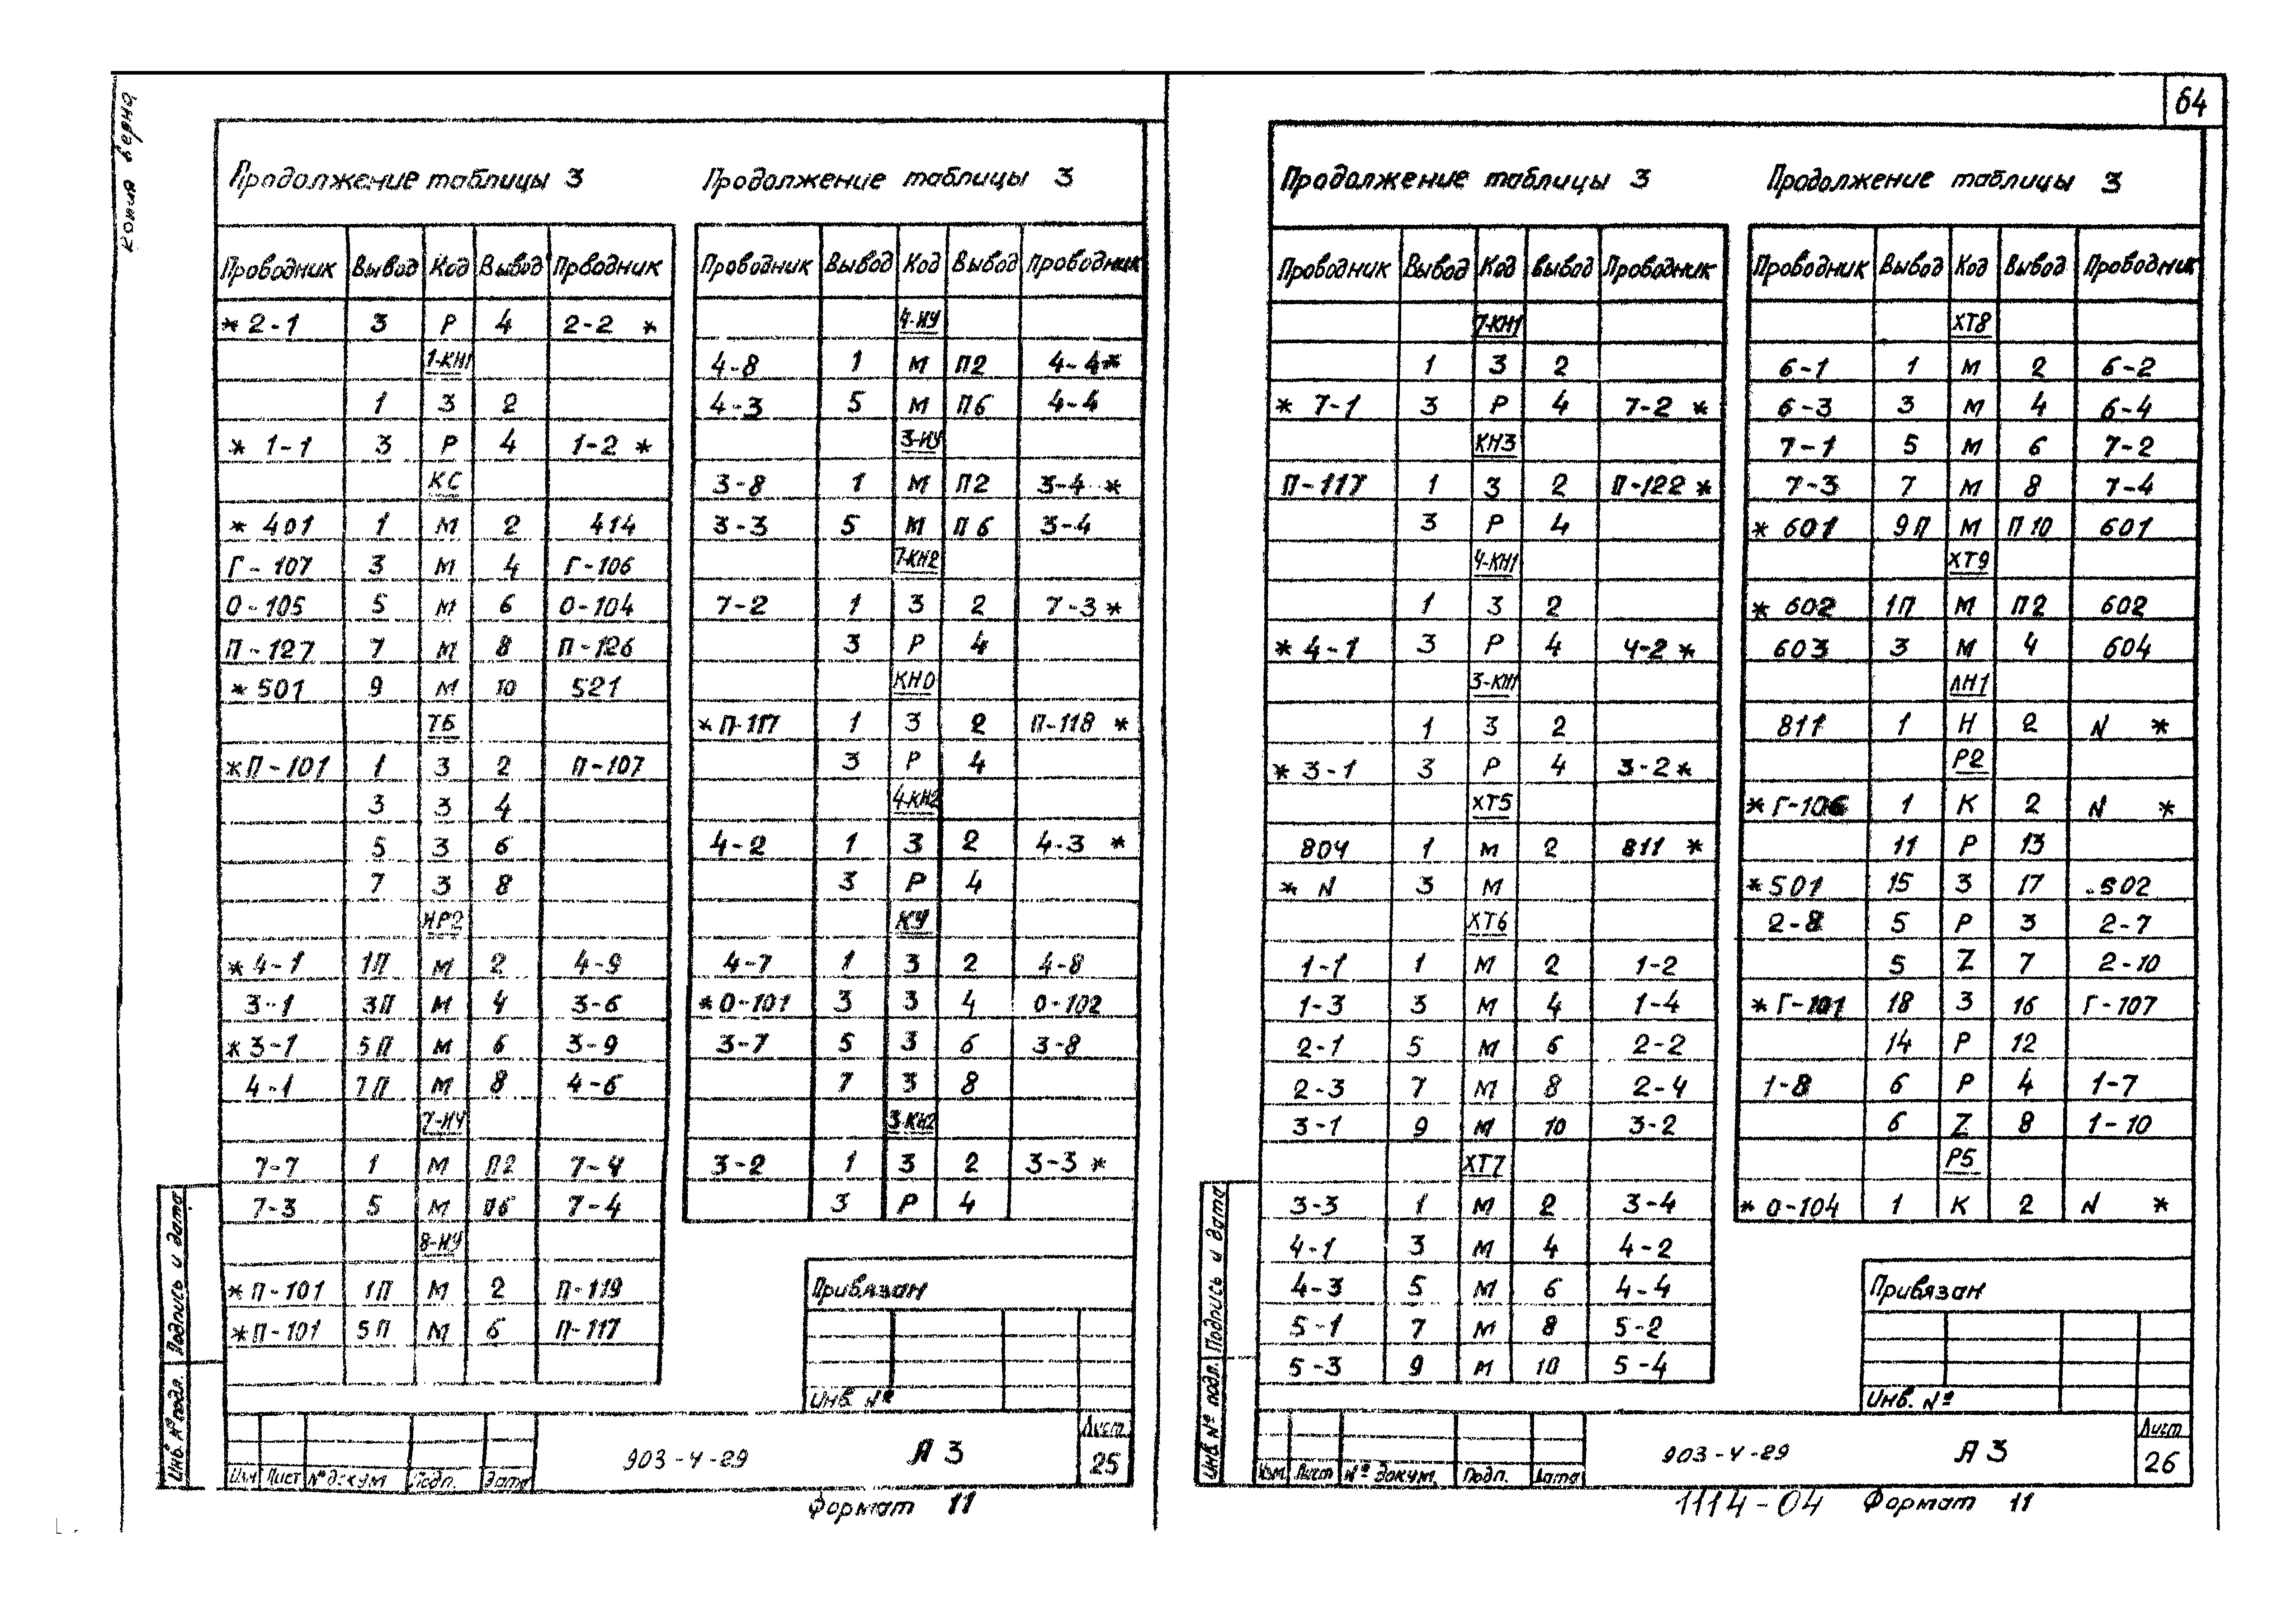 копия верна
64
Продолжение таблицы 3
Проводник Вывод Код Вывод Прводник
* 2-1 3 Р 4 2-2 *
1-КН1
1 З 2
* 1-1 3 Р 4 1-2 *
КС
* 401 1 М 2 414
Г-107 3 М 4 Г-106
О-105 5 М 6 О-104
П-127 7 М 8 П-126
* 501 9 М 10 521
Т6
* П-101 1 З 2 П-107
3 З 4
5 З 6
7 З 8
НР2
* 4-1 1П М 2 4-9
3-1 3П М 4 3-6
* 3-1 5П М 6 3-9
4-1 7П М 8 4-6
7-ИУ
7-7 1 М П2 7-4
7-3 5 М П6 7-4
8-ИУ
* П-101 1П М 2 П-119
* П-101 5П М 6 П-117
Продолжение таблицы 3
Проводник Вывод Код Вывод Проводник
4-ИУ
4-8 1 М П2 4-4 *
4-3 5 М П6 4-4
3-ИУ
3-8 1 М П2 3-4 *
3-3 5 М П6 3-4
7-КН2
7-2 1 З 2 7-3 *
3 Р 4
КНО
* П-117 1 З 2 П-118 *
3 Р 4
4-КН2
4-2 1 З 2 4-3 *
3 Р 4
КУ
4-7 1 З 2 4-8
* О-101 3 З 4 О-102
3-7 5 З 6 3-8
7 З 8
3-КН2
3-2 1 З 2 3-3 *
3 Р 4
Привязан
Инв. №
Инв. № подл. Подпись и дата
Изм Лист № докум Подп. Дата
903-4-29
А3
Лист
25
Формат 11
Продолжение таблицы 3
Проводник Вывод Код Вывод Проводник
7-КН1
1 З 2
* 7-1 3 Р 4 7-2 *
КН3
П-117 1 З 2 П-122 *
3 Р 4
4-КН1
1 З 2
* 4-1 3 Р 4 4-2 *
3-КН1
1 З 2
* 3-1 3 Р 4 3-2 *
ХТ5
804 1 М 2 811 *
* N 3 М
ХТ6
1-1 1 М 2 1-2
1-3 3 М 4 1-4
2-1 5 М 6 2-2
2-3 7 М 8 2-4
3-1 9 М 10 3-2
ХТ7
3-3 1 М 2 3-4
4-1 3 М 4 4-2
4-3 5 М 6 4-4
5-1 7 М 8 5-2
5-3 9 М 10 5-4
Продолжение таблицы 3
Проводник Вывод Код Вывод Проводник
ХТ8
6-1 1 М 2 6-2
6-3 3 М 4 6-4
7-1 5 М 6 7-2
7-3 7 М 8 7-4
* 601 9П М П10 601
ХТ9
* 602 1П М П2 602
603 3 М 4 604
ЛН1
811 1 Н 2 N *
Р2
* Г-106 1 К 2 N *
11 Р 13
* 501 15 З 17 502
2-8 5 Р 3 2-7
5 Z 7 2-10
* Г-101 18 З 16 Г-107
14 Р 12
1-8 6 Р 4 1-7
6 Z 8 1-10
Р5
* О-104 1 К 2 N *
Привязан
Инв. №
Инв. № подл. Подпись и дата
Изм Лист № докум. Подп. Дата
903-4-29
А3
Лист
26
1114-04 Формат 11